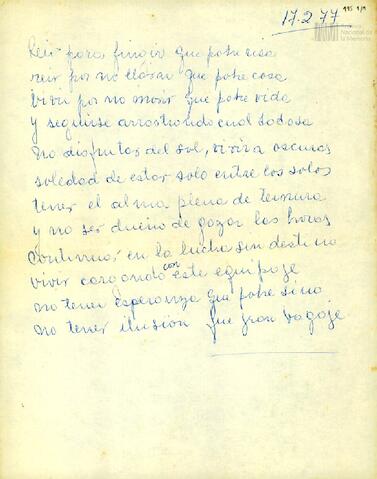 17.2.77
Reir para fingir que pobre cosa
reir por no llorar que pobre cosa
Vivir por no morir que pobre vida
y seguirse arrastrando cual
no disfrutar del sol, vivir a oscuras
soledad de estar solo entre los solos
tener el alma plena de ternura
y no ser dueño de gozar las horas
Continuar en la lucha sin destino
vivir cargando con este equipaje
no tener esperanza que pobre sino
no tener ilusion que gran bagaje